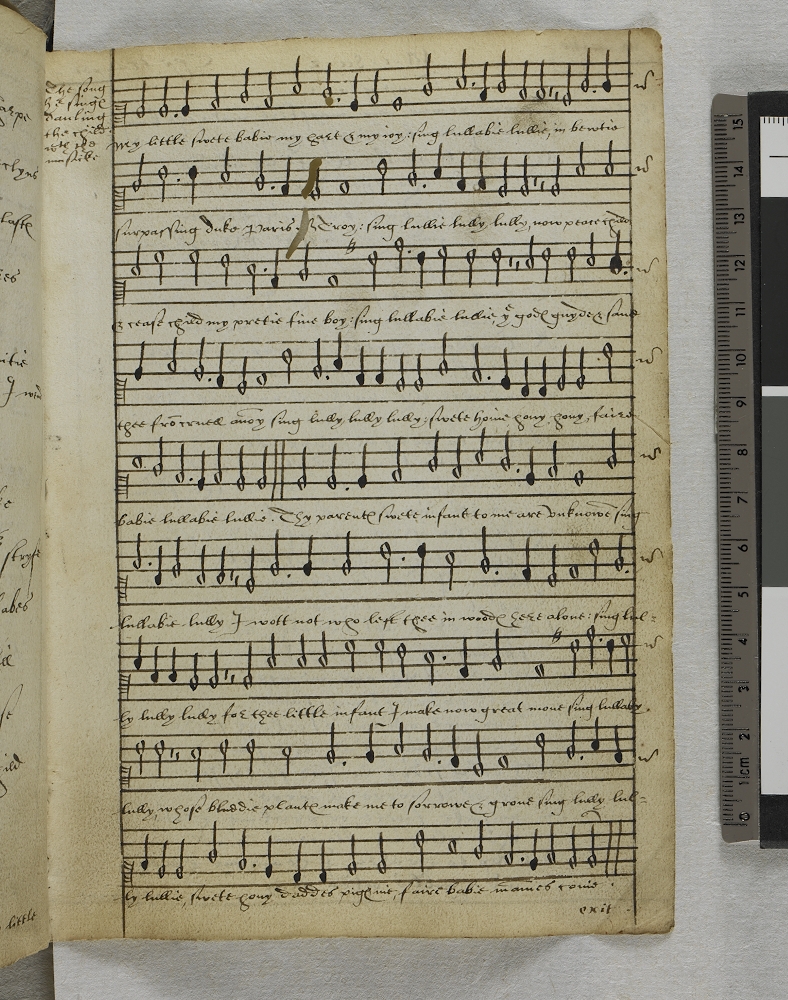 The song
he singe
daulling
the child
wth the
musike
My little swete babie my hart & my ioy: sing lullabie lullie, in bewtie
surpassing duke Paris of Troy: sing lullie lully, lully, now peace child
& cease child my pretie fine boy: sing lullabie lullie ye gods guyde & save
thee frō cruell anoy sing lully, lully lully: swete honie, hony, hony, faire
babie lullabie lullie. Thy parents swete infant to me are vnknowē sing
lullabie lully I wott not who left thee in woods here alone: sing lul-
ly lully lully for thee little infant I make now great mone sing lullaby,
lully, whose bluddie plants make me to sorrowe & grone sing lully lul-
ly lullie, swete hony daddes pigsnie, faire babie mamēs conie
exit
little
1cm 2 3 4 5 6 7 8 9 10 11 12 13 14 15